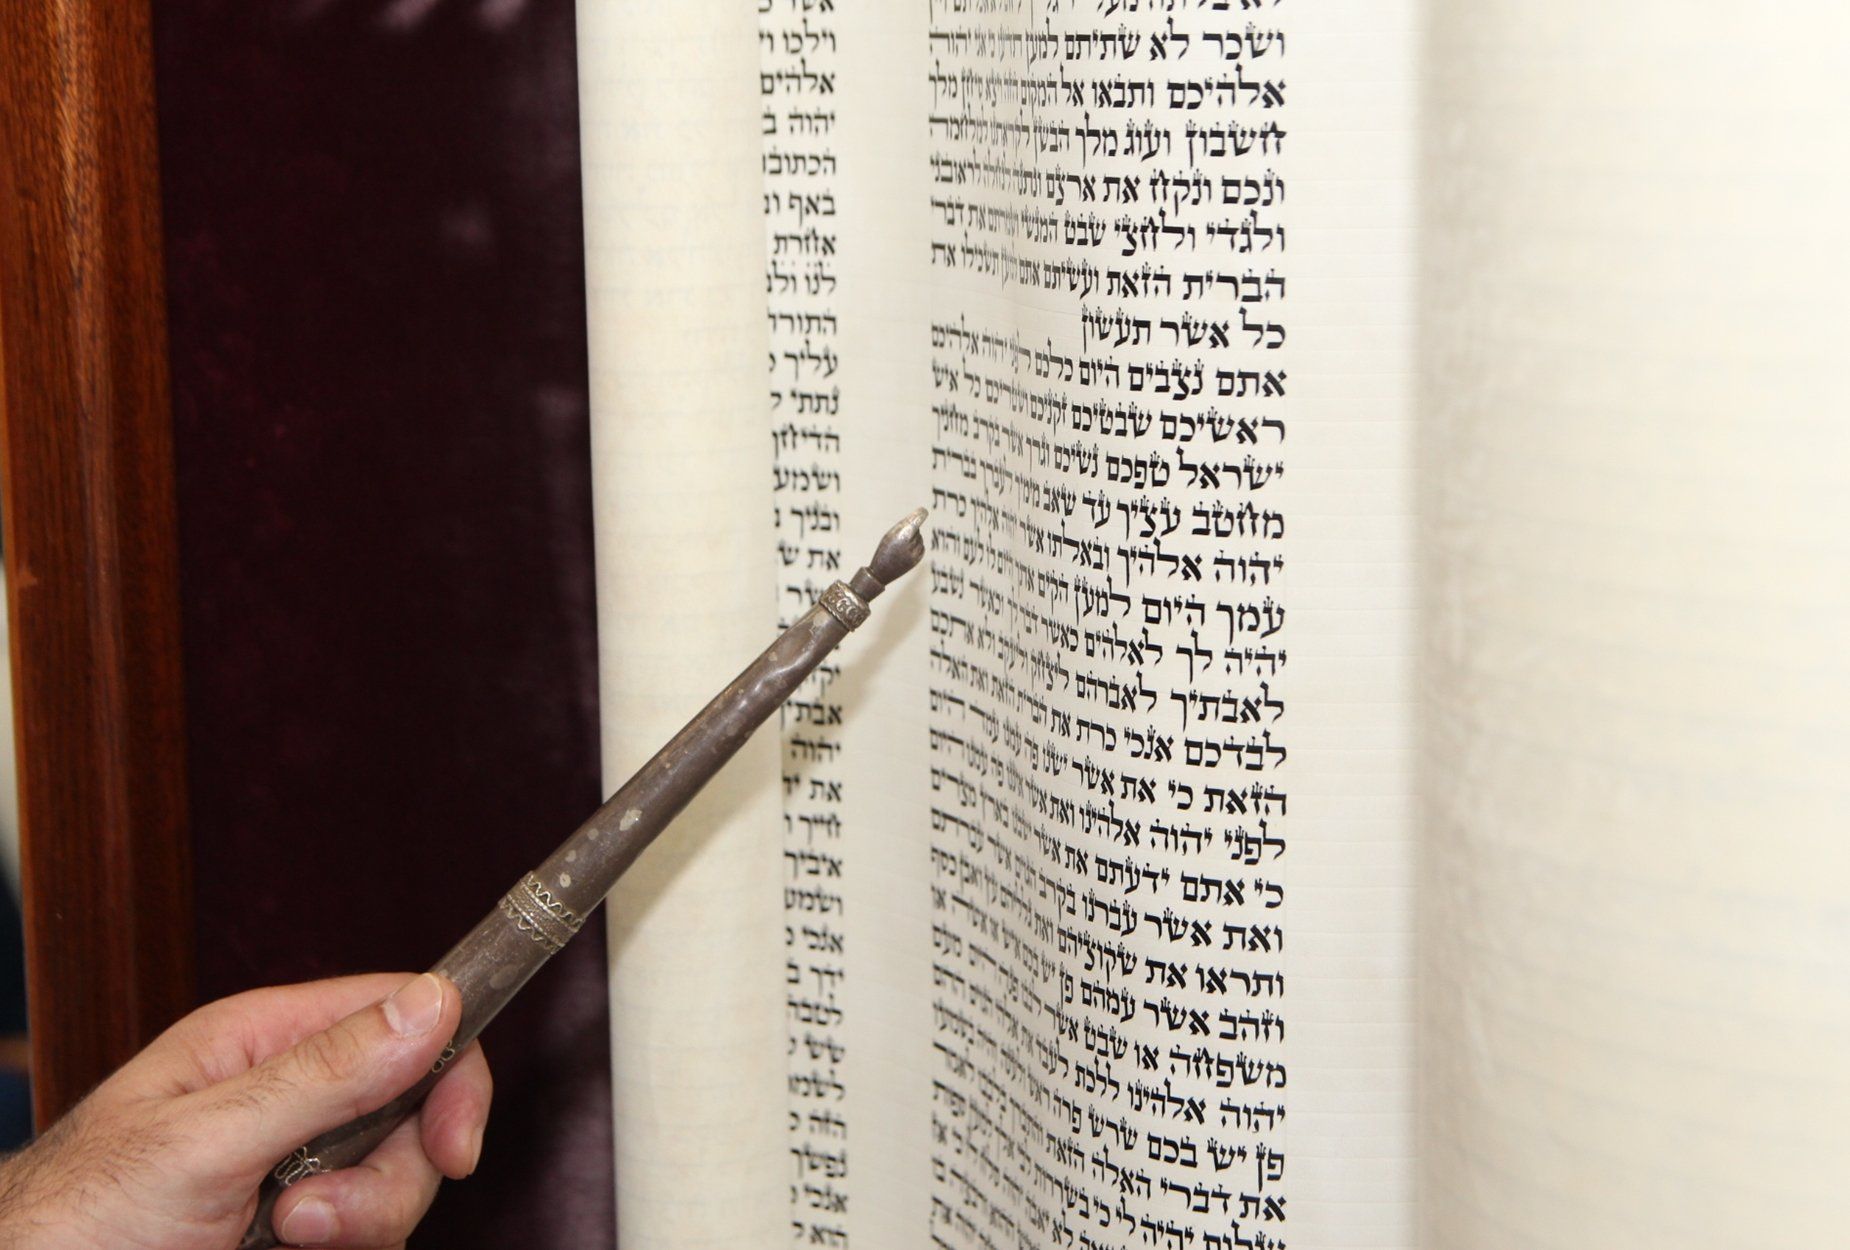 לא בלתה מעל רגלך לחם לא אכלתם ויין
ושכר לא שתיתם למען תדעו כי אני יהוה
אלהיכם ותבאו אל המקום הזה ויצא סיחן מלך
חשבון ועוג מלך הבשן לקראתנו למלחמה
ונכם ונקח את ארצם ונתנה לנחלה לראובני
ולגדי ולחצי שבט המנשי ושמרתם את דברי
הברית הזאת ועשיתם אתם למען תשכילו את
כל אשר תעשון
אתם נצבים היום כלכם לפני יהוה אלהיכם
ראשיכם שבטיכם זקניכם ושטריכם כל איש
ישראל טפכם נשיכם וגרך אשר בקרב מחניך
מחטב עציך עד שאב מימיך לעברך בברית
יהוה אלהיך ובאלתו אשר יהוה אלהיך כרת
עמך היום למען הקים אתך היום לו לעם והוא
יהיה לך לאלהים כאשר דבר לך וכאשר נשבע
לאבתיך לאברהם ליצחק וליעקב ולא אתכם
לבדכם אנכי כרת את הברית הזאת ואת האלה
הזאת כי את אשר ישנו פה עמנו עמד היום
לפני יהוה אלהינו ואת אשר איננו פה עמנו היום
כי אתם ידעתם את אשר ישבנו בארץ מצרים
ואת אשר עברנו בקרב הגוים אשר עברתם
ותראו את שקוציהם ואת גלליהם עץ ואבן כסף
וזהב אשר עמהם פן יש בכם איש או אשה או
משפחה או שבט אשר לבבו פנה היום מעם
יהוה אלהינו ללכת לעבד את אלהי הגוים ההם
פן יש בכם שרש פרה ראש ולענה והיה בשמעו
את דברי האלה הזאת והתברך בלבבו לאמר
שלום יהיה לי כי בשררות לבי אלך למען ספות
אשר
וילכו
אלהים
יהוה
באף
אחרת
לנו
עליך
נתתי
ובניך
את
יהוה
את
איביך
אנכי
ידך
לטבה
הזה
נפשך
אנכי
הוא